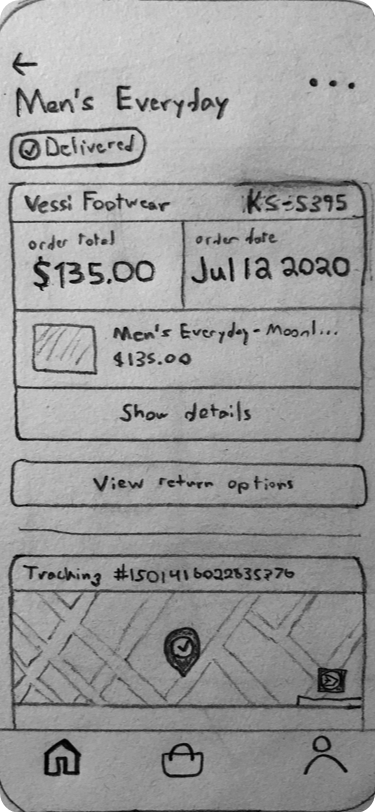 Men's Everyday
Delivered
Vessi Footwear KS-5395
order total
order date
$135.00
Jul 12 2020
Men's Everyday - Moonl...
$135.00
Show details
View return options
Tracking